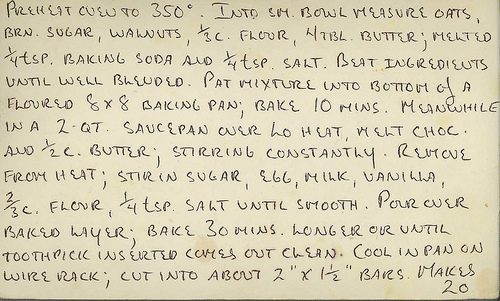 PREHEAT OVEN TO 350°. INTO SM. BOWL MEASURE OATS,
BRN. SUGAR, WALNUTS, 1/3 C. FLOUR, 4 TBL. BUTTER; MELTED
1/4 tSP. BAKING SODA AND 1/4 tSP. SALT. BEAT INGREDIENTS
UNTIL WELL BLENDED. PAT MIXTURE INTO BOTTOM of A
FLOURED 8 x 8 BAKING PAN; BAKE 10 MINS. MEANWHILE
IN A 2-QT. SAUCEPAN OVER LO HEAT, MELT CHOC.
AND 1/2 C. BUTTER; STIRRING CONSTANTLY. REMOVE
FROM HEAT; STIR IN SUGAR, EGG, MILK, VANILLA,
2/3 C. FLOUR, 1/4 tSP. SALT UNTIL SMOOTH. POUR OVER
BAKED LAYER; BAKE 30 MINS. LONGER OR UNTIL
TOOTHPICK INSERTED COMES OUT CLEAN. COOL IN PAN ON
WIRE RACK; CUT INTO ABOUT 2" X 1 1/2" BARS. MAKES
20